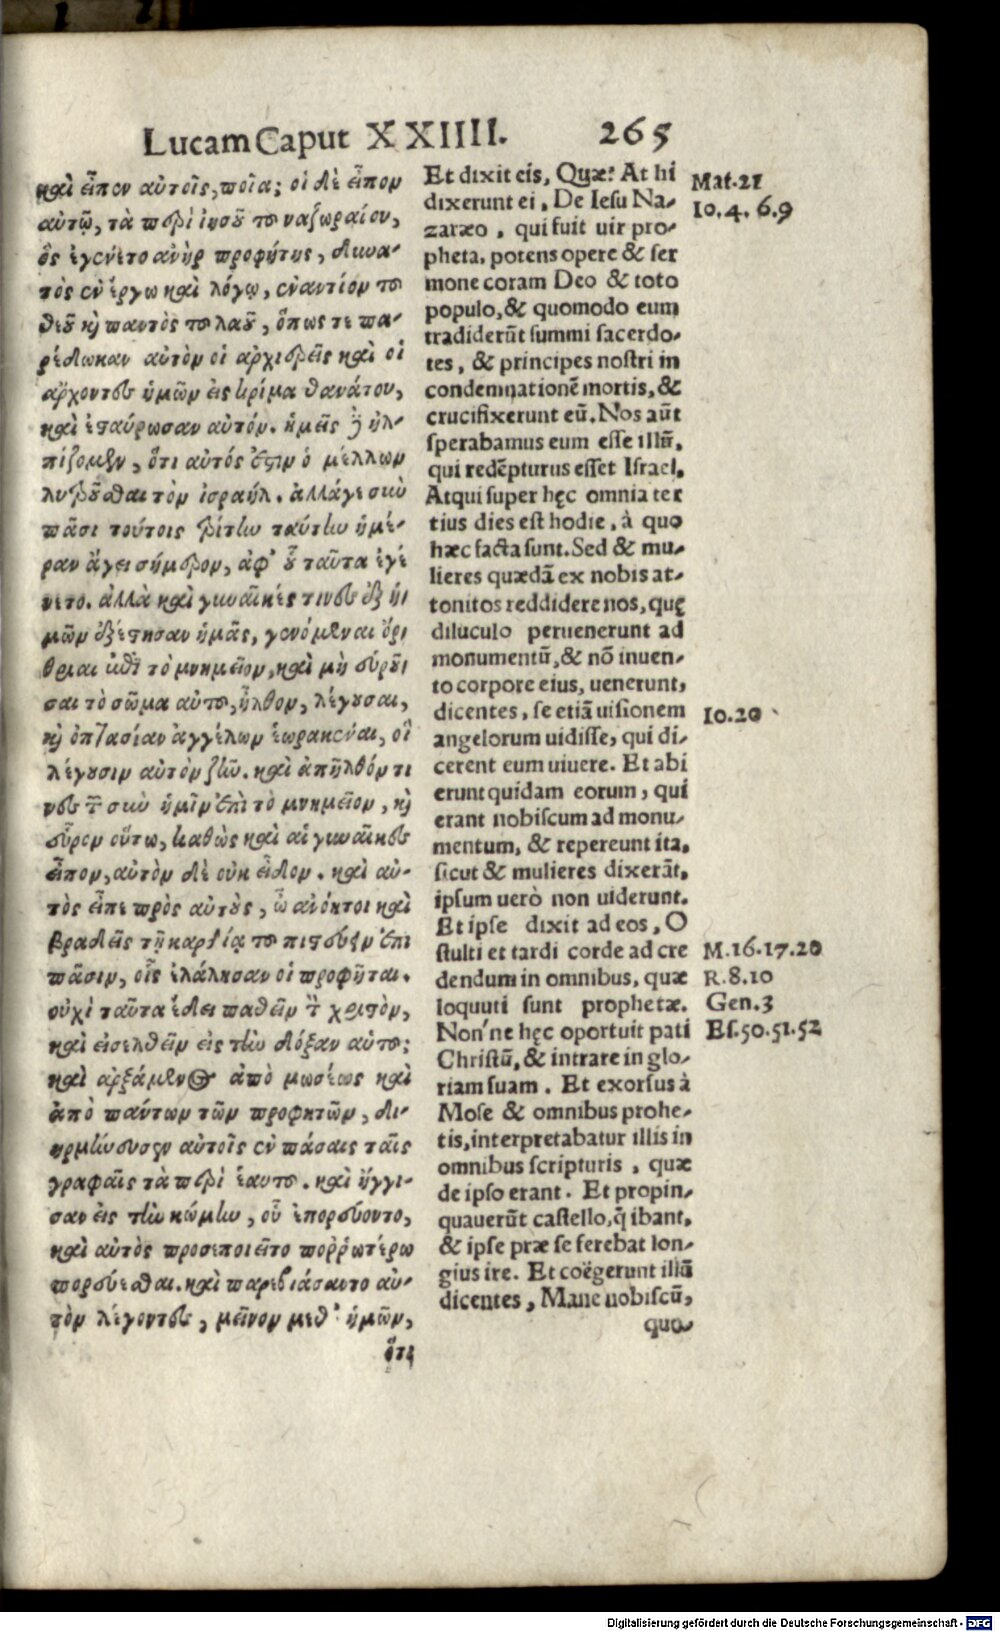 Lucam Caput XXIIII. 265
καὶ εἶπεν αὐτοῖς, ποῖα; οἱ δὲ εἶπον
αὐτῷ, τὰ περὶ ἰησοῦ τοῦ ναζωραίου,
ὃς ἐγένετο ἀνὴρ προφήτης, δυνα-
τὸς ἐν ἔργῳ καὶ λόγῳ, ἐναντίον τοῦ
θεοῦ καὶ παντὸς τοῦ λαοῦ, ὅπως τε πα-
ρέδωκαν αὐτὸν οἱ ἀρχιερεῖς καὶ οἱ
ἄρχοντες ἡμῶν εἰς κρίμα θανάτου,
καὶ ἐσταύρωσαν αὐτόν. ἡμεῖς δὲ ἠλ-
πίζομεν, ὅτι αὐτός ἐστιν ὁ μέλλων
λυτροῦσθαι τὸν ἰσραήλ. ἀλλάγε σὺν
πᾶσι τούτοις τρίτην ταύτην ἡμέ-
ραν ἄγει σήμερον, ἀφ' οὗ ταῦτα ἐγέ
νετο. ἀλλὰ καὶ γυναῖκές τινες ἐξ ἡ
μῶν ἐξέστησαν ἡμᾶς, γενόμεναι ὄρ
θριαι ἐπὶ τὸ μνημεῖον, καὶ μὴ εὑροῦ
σαι τὸ σῶμα αὐτοῦ, ἦλθον, λέγουσαι,
καὶ ὀπτασίαν ἀγγέλων ἑωρακέναι, οἳ
λέγουσιν αὐτὸν ζῆν. καὶ ἀπῆλθόν τι
νες τῶν σὺν ἡμῖν ἐπὶ τὸ μνημεῖον, καὶ
εὗρον οὕτω, καθὼς καὶ αἱ γυναῖκες
εἶπον, αὐτὸν δὲ οὐκ εἶδον. καὶ αὐ-
τὸς εἶπε πρὸς αὐτοὺς, ὦ ἀνόητοι καὶ
βραδεῖς τῇ καρδίᾳ τοῦ πιστεύειν ἐπὶ
πᾶσιν, οἷς ἐλάλησαν οἱ προφῆται.
οὐχὶ ταῦτα ἔδει παθεῖν τὸν χριστὸν,
καὶ εἰσελθεῖν εἰς τὴν δόξαν αὐτοῦ;
καὶ ἀρξάμενος ἀπὸ μωσέως καὶ
ἀπὸ πάντων τῶν προφητῶν, δι-
ηρμήνευεν αὐτοῖς ἐν πάσαις ταῖς
γραφαῖς τὰ περὶ ἑαυτοῦ. καὶ ἤγγι-
σαν εἰς τὴν κώμην, οὗ ἐπορεύοντο,
καὶ αὐτὸς προσεποιεῖτο πορρωτέρω
πορεύεσθαι. καὶ παρεβιάσαντο αὐ-
τὸν λέγοντες, μεῖνον μεθ' ἡμῶν,
ὅτι
Et dixit eis, Quæ? At hi
dixerunt ei, De Iesu Na-
zaræo, qui fuit uir pro-
pheta, potens opere & ser
mone coram Deo & toto
populo, & quomodo eum
tradiderūt summi sacerdo-
tes, & principes nostri in
condemnationē mortis, &
crucifixerunt eū. Nos aūt
sperabamus eum esse illū,
qui redēpturus esset Israel.
Atqui super hęc omnia ter
tius dies est hodie, à quo
hæc facta sunt. Sed & mu-
lieres quædā ex nobis at-
tonitos reddidere nos, quę
diluculo peruenerunt ad
monumentū, & nō inuen-
to corpore eius, uenerunt,
dicentes, se etiā uisionem
angelorum uidisse, qui di-
cerent eum uiuere. Et abi
erunt quidam eorum, qui
erant nobiscum ad monu-
mentum, & repereunt ita,
sicut & mulieres dixerāt,
ipsum uerò non uiderunt.
Et ipse dixit ad eos, O
stulti et tardi corde ad cre
dendum in omnibus, quæ
loquuti sunt prophetæ.
Non'ne hęc oportuit pati
Christū, & intrare in glo-
riam suam. Et exorsus à
Mose & omnibus prohe-
tis, interpretabatur illis in
omnibus scripturis, quæ
de ipso erant. Et propin-
quauerūt castello, q̄ ibant,
& ipse præ se ferebat lon-
gius ire. Et coëgerunt illū
dicentes, Mane nobiscū,
quo-
Mat.21
Io.4.6.9
Io.20
M.16.17.20
R.8.10
Gen.3
Es.50.51.52
Digitalisierung gefördert durch die Deutsche Forschungsgemeinschaft - DFG